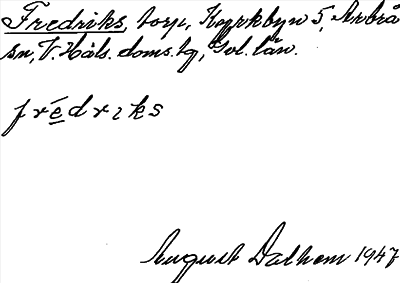 Fredriks, torp, Kyrkbyn 5, Arbrå
sn, V. Häls. doms.hg, Gvl. län.
frédriks
August Dalhem 1947